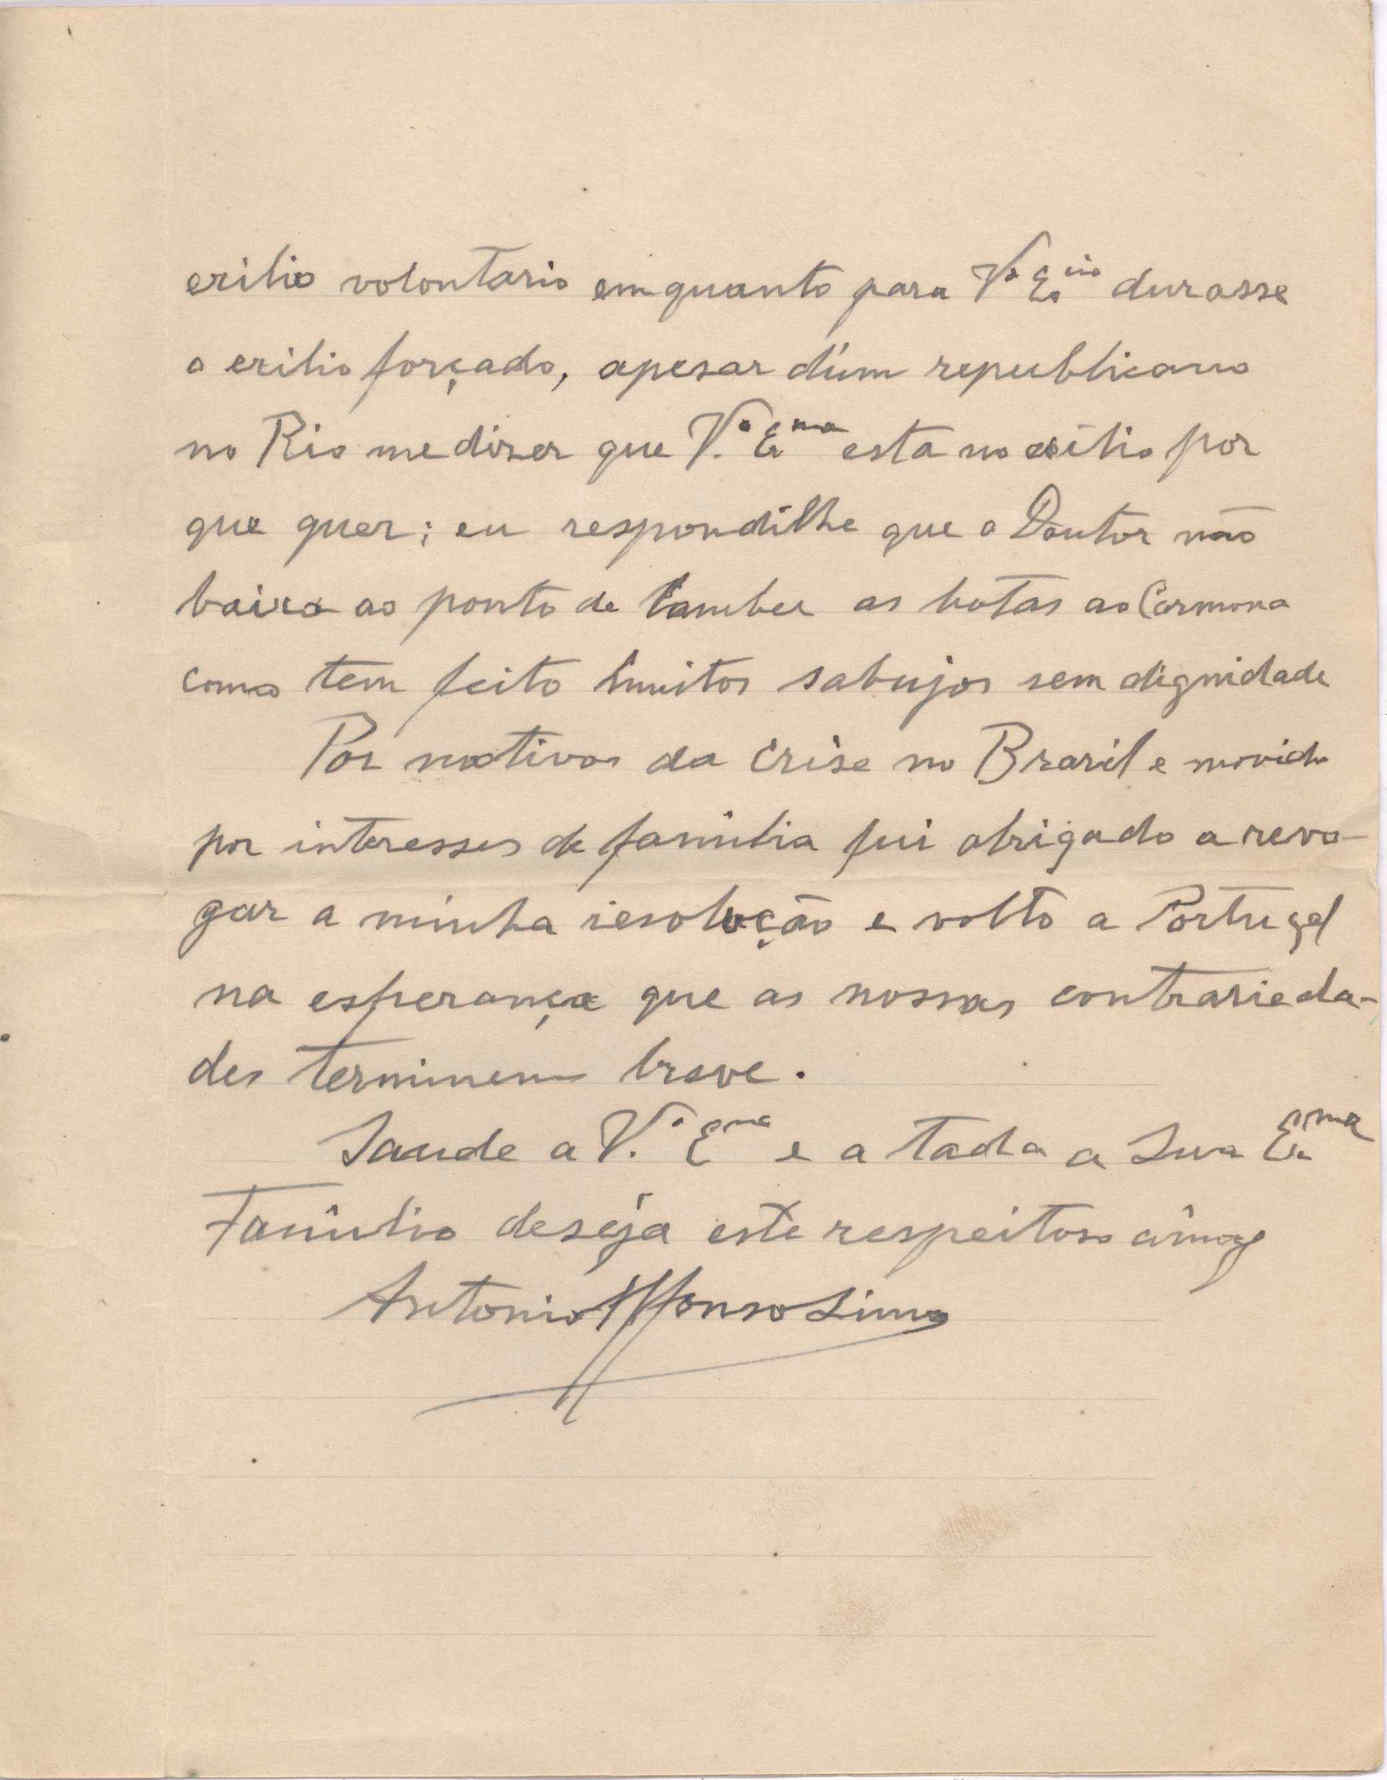 exilio volontario emquanto para V.ª Ex.cia durasse
o exilio forçado, apesar d'úm republicano
no Rio me dizer que V.ª Ex.ma esta no exilio por
que quer; eu respondilhe que o Doutor não
baixa ao ponto de lamber as botas ao Carmona
como tem feito muitos sabujos sem dignidade
Por motivos da crise no Brazil e movido
por interesses de familia fui obrigado a revo-
gar a minha resolução e volto a Portugal
na esperança que as nossas contrarieda-
des terminem breve.
Saude a V.ª Ex.ma e a toda a Sua Ex.ma
Familia deseja este respeitoso amigo
Antonio Affonso Lima